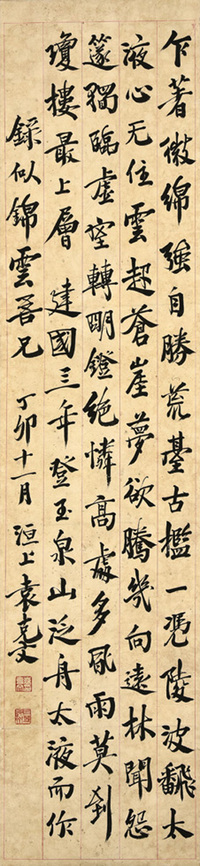 乍著微綿強自勝荒臺古檻一憑陵波飛太
液心无住雲起蒼崖夢欲騰幾向遠林聞怨
篴獨臨虛室轉明鐙絕憐高處多風雨莫到
瓊樓最上層 建國三年登玉泉山泛舟太液而作
錄似錦雲善兄 丁卯十一月 洹上袁克文